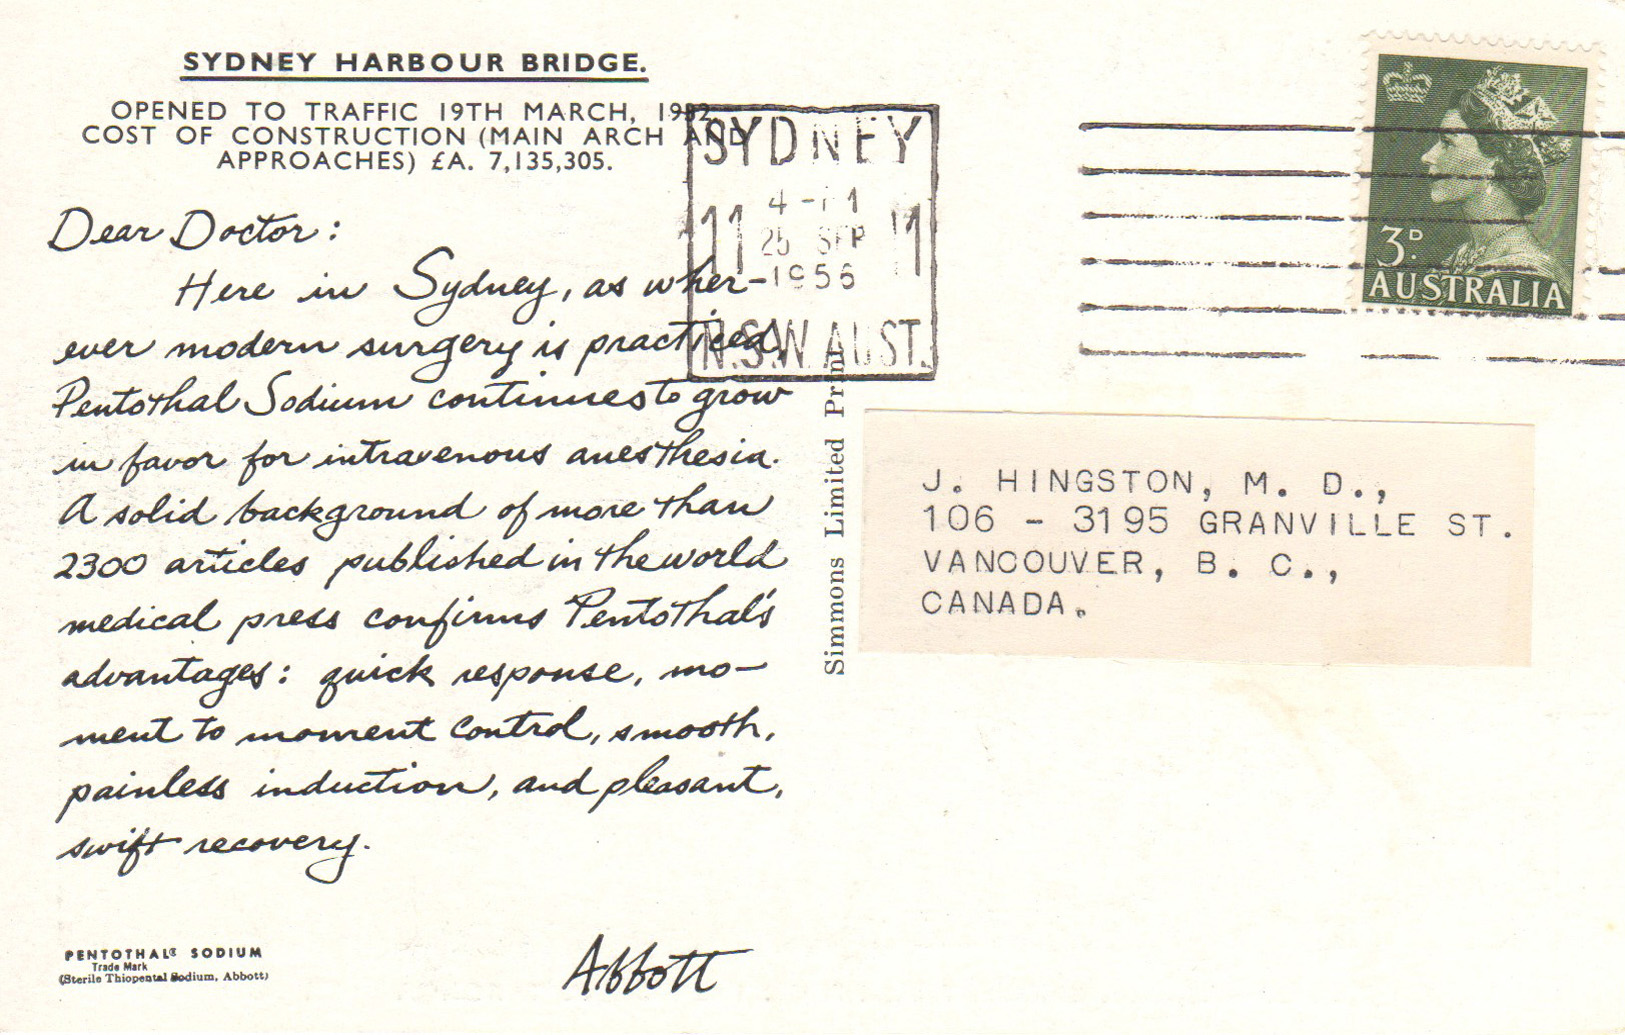 SYDNEY HARBOUR BRIDGE.
OPENED TO TRAFFIC 19TH MARCH, 1932.
COST OF CONSTRUCTION (MAIN ARCH AND
APPROACHES) £A. 7,135,305.
Dear Doctor:
Here in Sydney, as wher-
ever modern surgery is practiced,
Pentothal Sodium continues to grow
in favor for intravenous anesthesia.
A solid background of more than
2300 articles published in the world
medical press confirms Pentothal's
advantages: quick response, mo-
ment to moment control, smooth,
painless induction, and pleasant,
swift recovery.
Abbott
PENTOTHAL® SODIUM
Trade Mark
(Sterile Thiopental Sodium, Abbott)
Simmons Limited Print
SYDNEY
11 25 SEP 11
-1956
N.S.W. AUST.
3D.
AUSTRALIA
J. HINGSTON, M. D.,
106 - 3195 GRANVILLE ST.
VANCOUVER, B. C.,
CANADA.